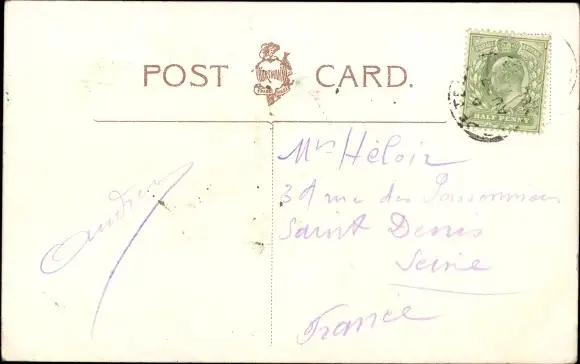 POST CARD.
HALF PENNY
Mrs Héloir
rue des Poissonniers
Saint Denis
Seine
France